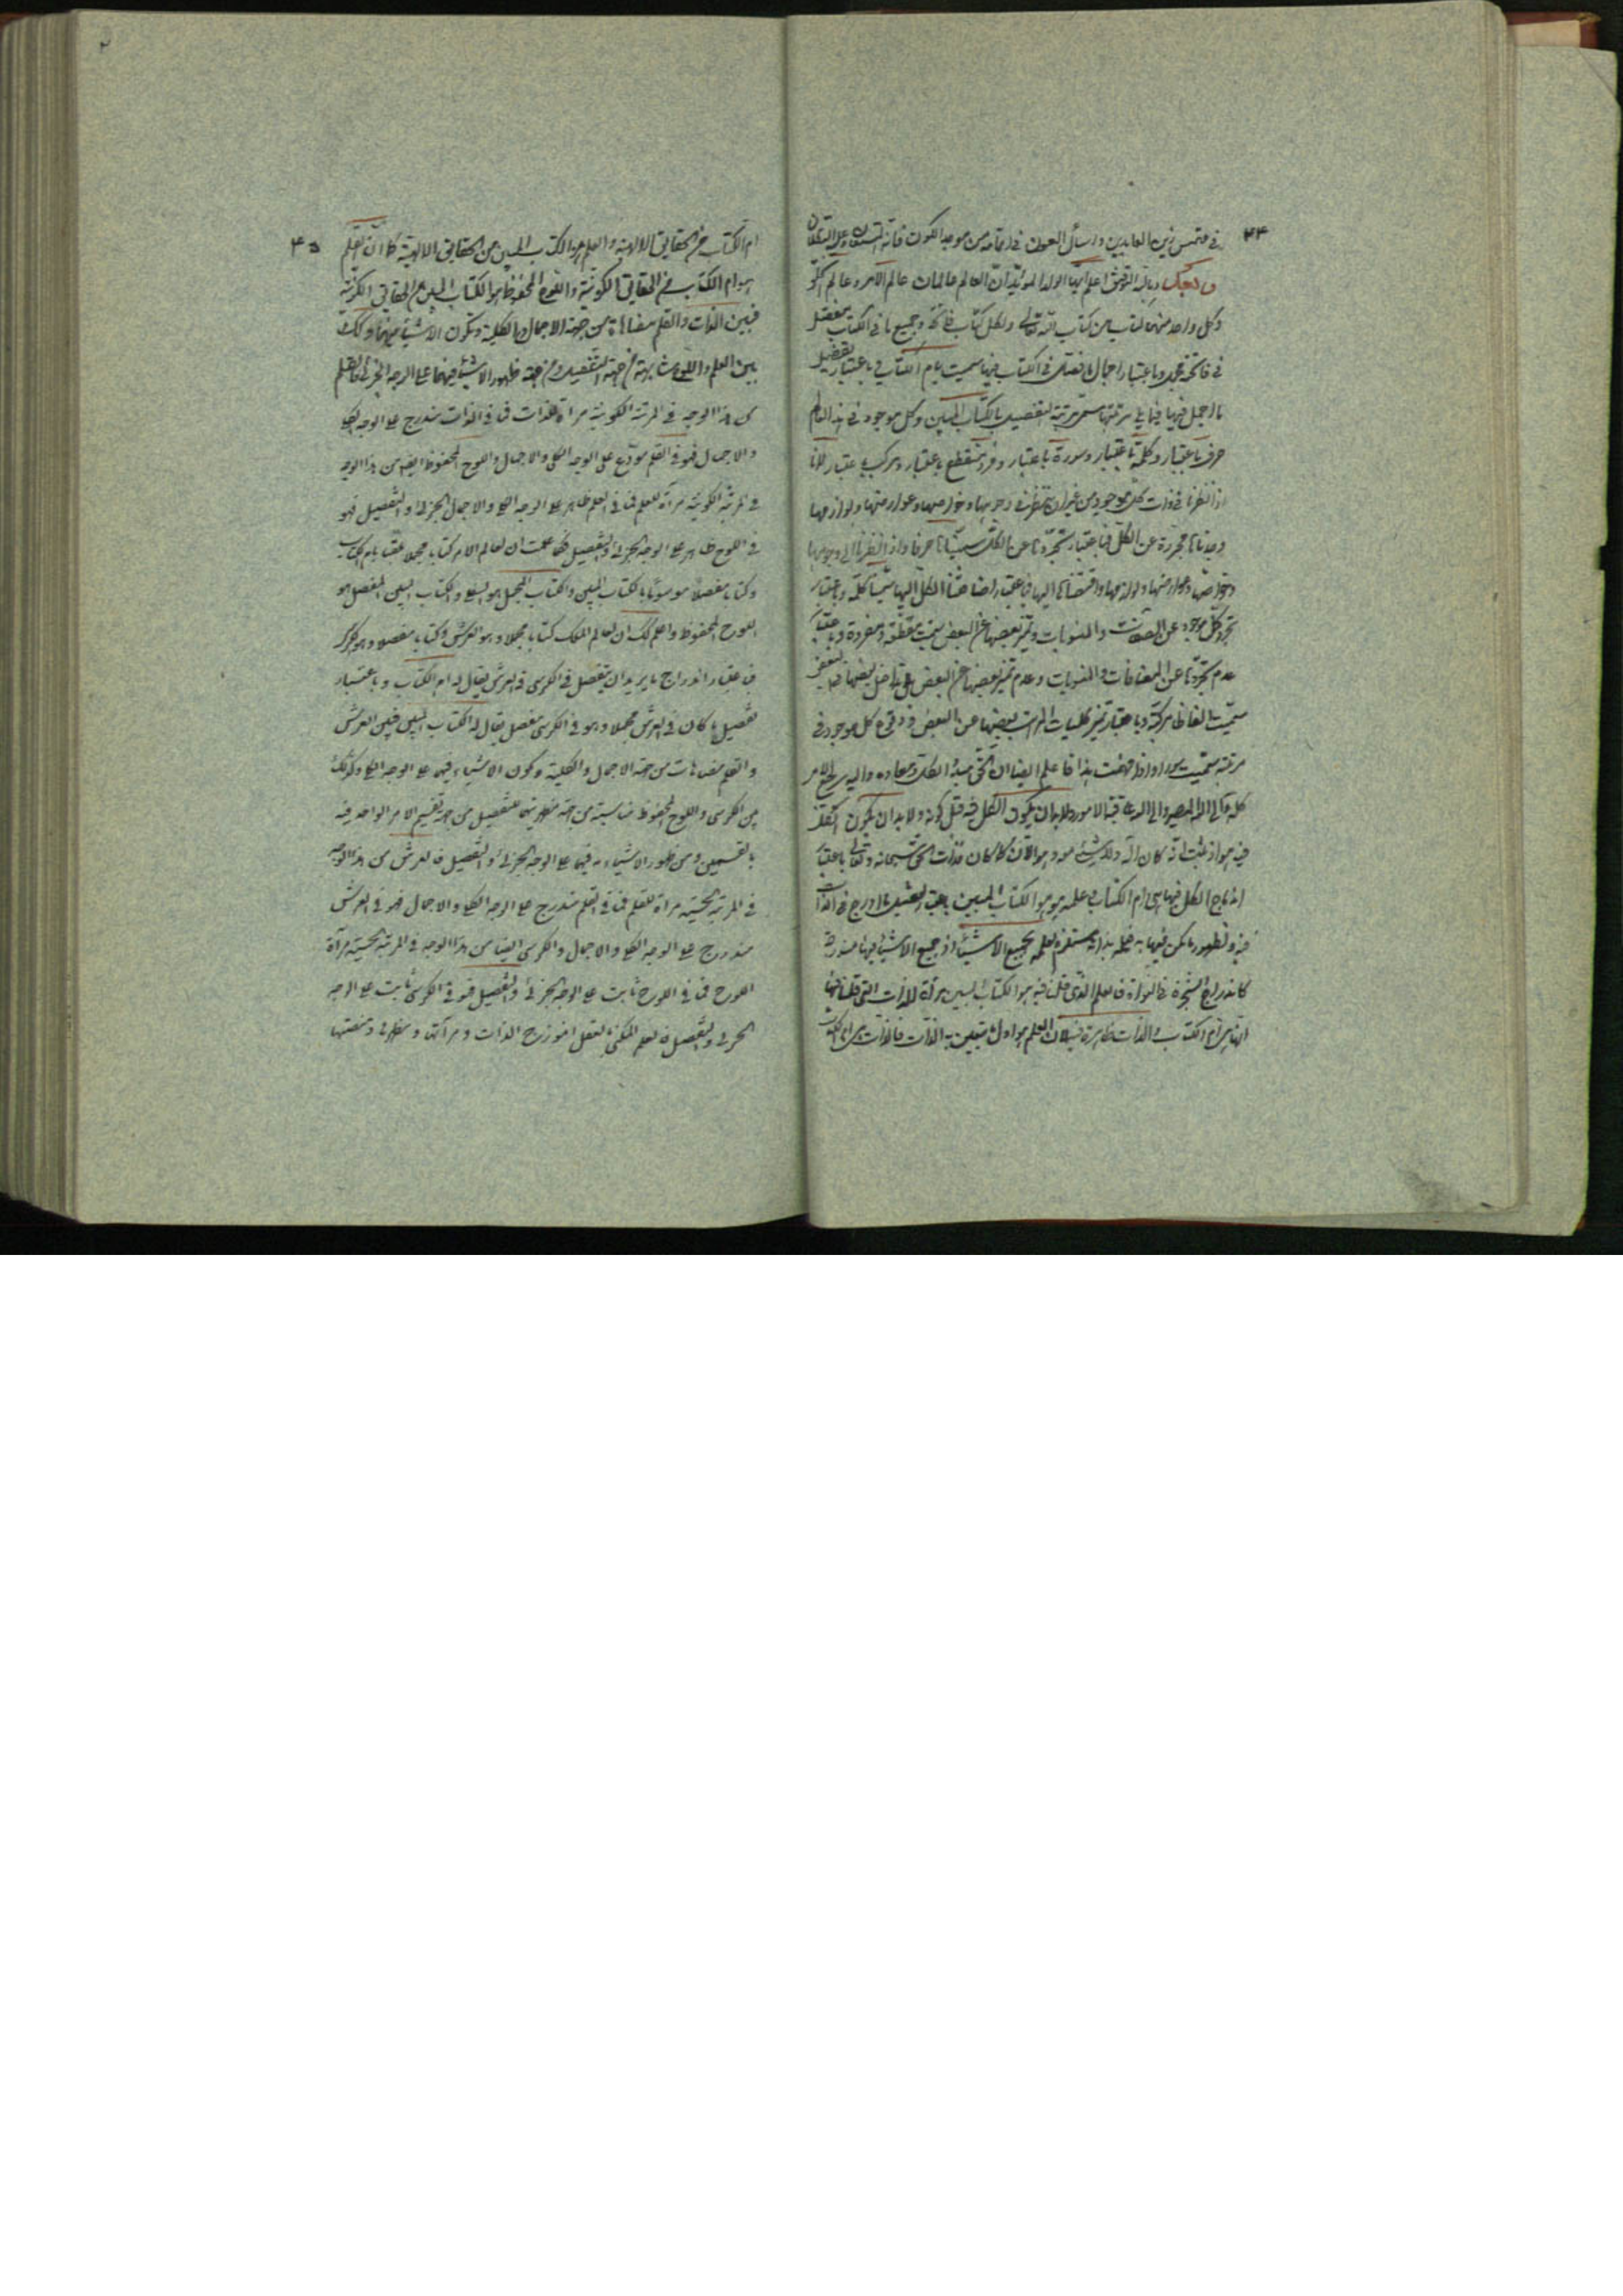 ٤٤
في ملتمس زين العابدين واسأل العون في اتمامه من موجد الكون فانه المستعان وعليه التكلان
وبالله التوفيق اعلم ايها الولد المؤيد ان العالم عالمان عالم الامر وعالم الخلق
وكل واحد منهما كتاب من كتاب الله تعالى ولكل كتاب فاتحة وجميع ما في الكتاب مفصل
في فاتحة مجمل وباعتبار اجمال ما فصل في الكتاب فيها سميت بام الكتاب وباعتبار تفصيل
ما اجمل فيها فيما يلي مرتبتها سمى مرتبة التفصيل بالكتاب المبين وكل موجود في هذا العالم
حرف باعتبار وكلمة باعتبار وسورة باعتبار ومفرد متقطع باعتبار ومركب باعتبار لانا
اذا نظرنا في ذات كل موجود من غير ان ننظر في وجوهها وخواصها وعوارضها ولوازمها
وجدناها مجردة عن الكل فباعتبار تجردها عن الكل سميناها حرفا واذا نظرنا الى وجوهها
وخواصها وعوارضها ولوازمها واضفناها اليها فباعتبار اضافتنا الكل اليها سميناها كلمة وباعتبار
تجرد كل موجود عن المضافات والمنسوبات وتميز بعضها عن البعض سميت متقطعة ومفردة وباعتبار
عدم تجردها عن المضافات والمنسوبات وعدم تميز بعضها عن البعض بل تداخل بعضها في بعض
سميت الفاظا مركبة وباعتبار تميز كليات المراتب بعضها عن البعض كل موجود في
مرتبة سميت سورا واذا فهمت هذا فاعلم ايضا ان الحق مبدأ الكل ومعاده واليه يرجع الامر
كله الى الله المصير والى الله عاقبة الامور ولا بد ان يكون الكل فيه قبل كونه ولا بد ان يكون الكل
فيه هو اذ ثبت انه كان الله ولا شيء معه وهو الآن كما كان فذات الحق سبحانه وتعالى باعتبار
اندماج الكل فيها هي ام الكتاب وعلمه هو الكتاب المبين باعتبار تفصيل ما ادرج في الذات
فيه وظهور ما كمن فيها به فعلمه بذاته مستلزم لعلمه بجميع الاشياء اذ جميع الاشياء فيها مندرجة
كاندراج الشجرة في النواة فالعلم الذي قلنا فيه هو الكتاب المبين مرآة للذات التي قلنا فيها
انها هي ام الكتاب والذات ظاهرة فيه لان العلم هو اول ما يتعين به الذات فالذات هي ام الكتاب
٤٥
ام الكتاب من الحقايق الالهية والعلم هو الكتاب المبين من الحقايق الالهية كما ان القلم
هو ام الكتاب من الحقايق الكونية واللوح المحفوظ هو الكتاب المبين من الحقايق الكونية
فبين الذات والقلم مضاهاة من جهة الاجمال والكلية وكون الاشياء فيهما وكذلك
بين العلم واللوح مشابهة من جهة التفصيل ومن جهة ظهور الاشياء فيهما على الوجه الجزئي فالقلم
من هذا الوجه في المرتبة الكونية مرآة للذات فما في الذات مندرج على الوجه الكلي
والاجمال فهو في القلم مودع على الوجه الكلي والاجمال واللوح المحفوظ ايضا من هذا الوجه
في المرتبة الكونية مرآة للعلم فما في العلم ظاهر على الوجه الجزئي والتفصيل فهو
في اللوح ظاهر على الوجه الجزئي والتفصيل فكما علمت ان لعالم الامر كتابا مجملا ملقبا بام الكتاب
وكتابا مفصلا موسوما بالكتاب المبين والكتاب المجمل هو القلم والكتاب المبين المفصل هو
اللوح المحفوظ واعلم كذلك ان لعالم الملك كتابا مجملا وهو العرش وكتابا مفصلا وهو الكرسي
فباعتبار اندراج ما يريد ان يتفصل في الكرسي في العرش يقال له ام الكتاب وباعتبار
تفصيل ما كان في العرش مجملا وهو في الكرسي مفصل يقال له الكتاب المبين فبين العرش
والقلم مضاهات من جهة الاجمال والكلية وكون الاشياء فيهما على الوجه الكلي وكذلك
بين الكرسي واللوح المحفوظ مناسبة من جهة مظهريتهما للتفصيل من جهة تقسيم الامر الواحد فيه
بالقسمين ومن ظهور الاشياء فيهما على الوجه الجزئي والتفصيل فالعرش من هذا الوجه
في المرتبة الحسية مرآة للقلم فما في القلم مندرج على الوجه الكلي والاجمال فهو في العرش
مندرج على الوجه الكلي والاجمال والكرسي ايضا من هذا الوجه في المرتبة الحسية مرآة
اللوح فما في اللوح ثابت على الوجه الجزئي والتفصيل فهو في الكرسي ثابت على الوجه
الجزئي والتفصيل فالعلم المكنى بالعقل انموزج الذات ومرآتها ومظهرها ومنصتها